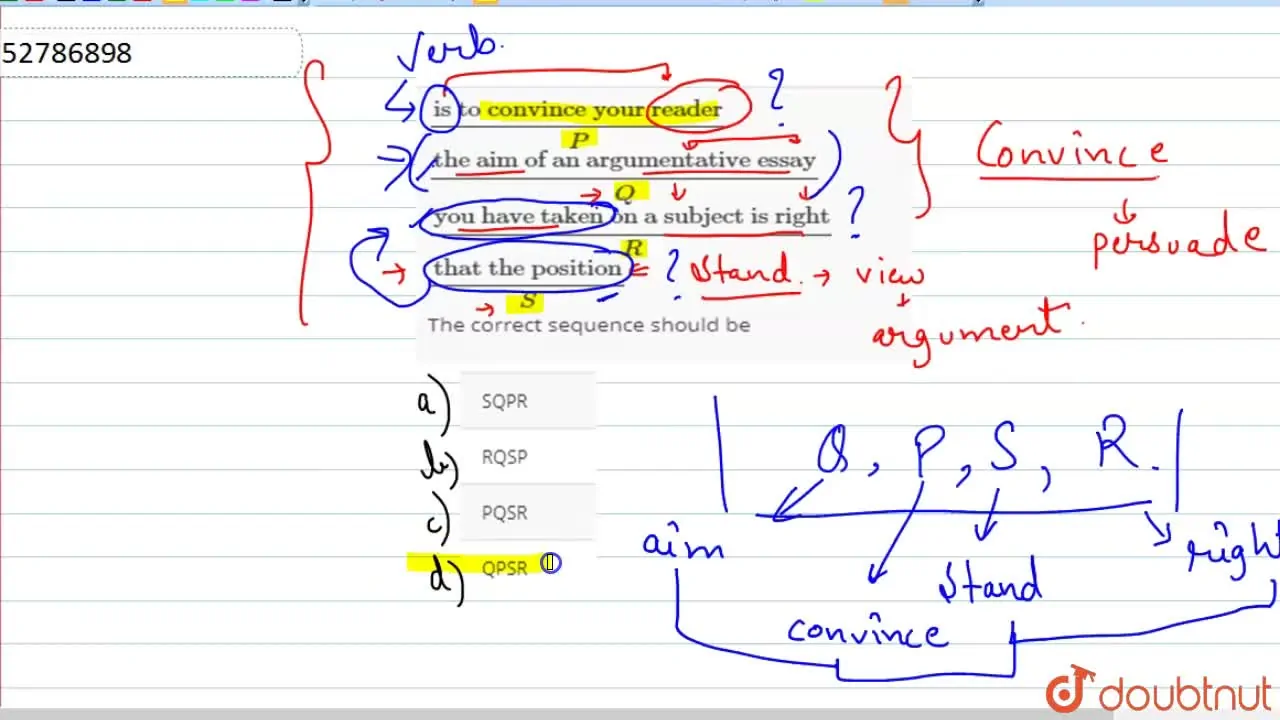 52786898
Verb.
is to convince your reader ?
P
the aim of an argumentative essay
Q
Convince
you have taken on a subject is right ?
R
persuade
that the position = ? Stand. → view
S
argument.
The correct sequence should be
a) SQPR
b) RQSP
c) PQSR
d) QPSR
Q, P, S, R.
aim
right
Stand
convince
doubtnut